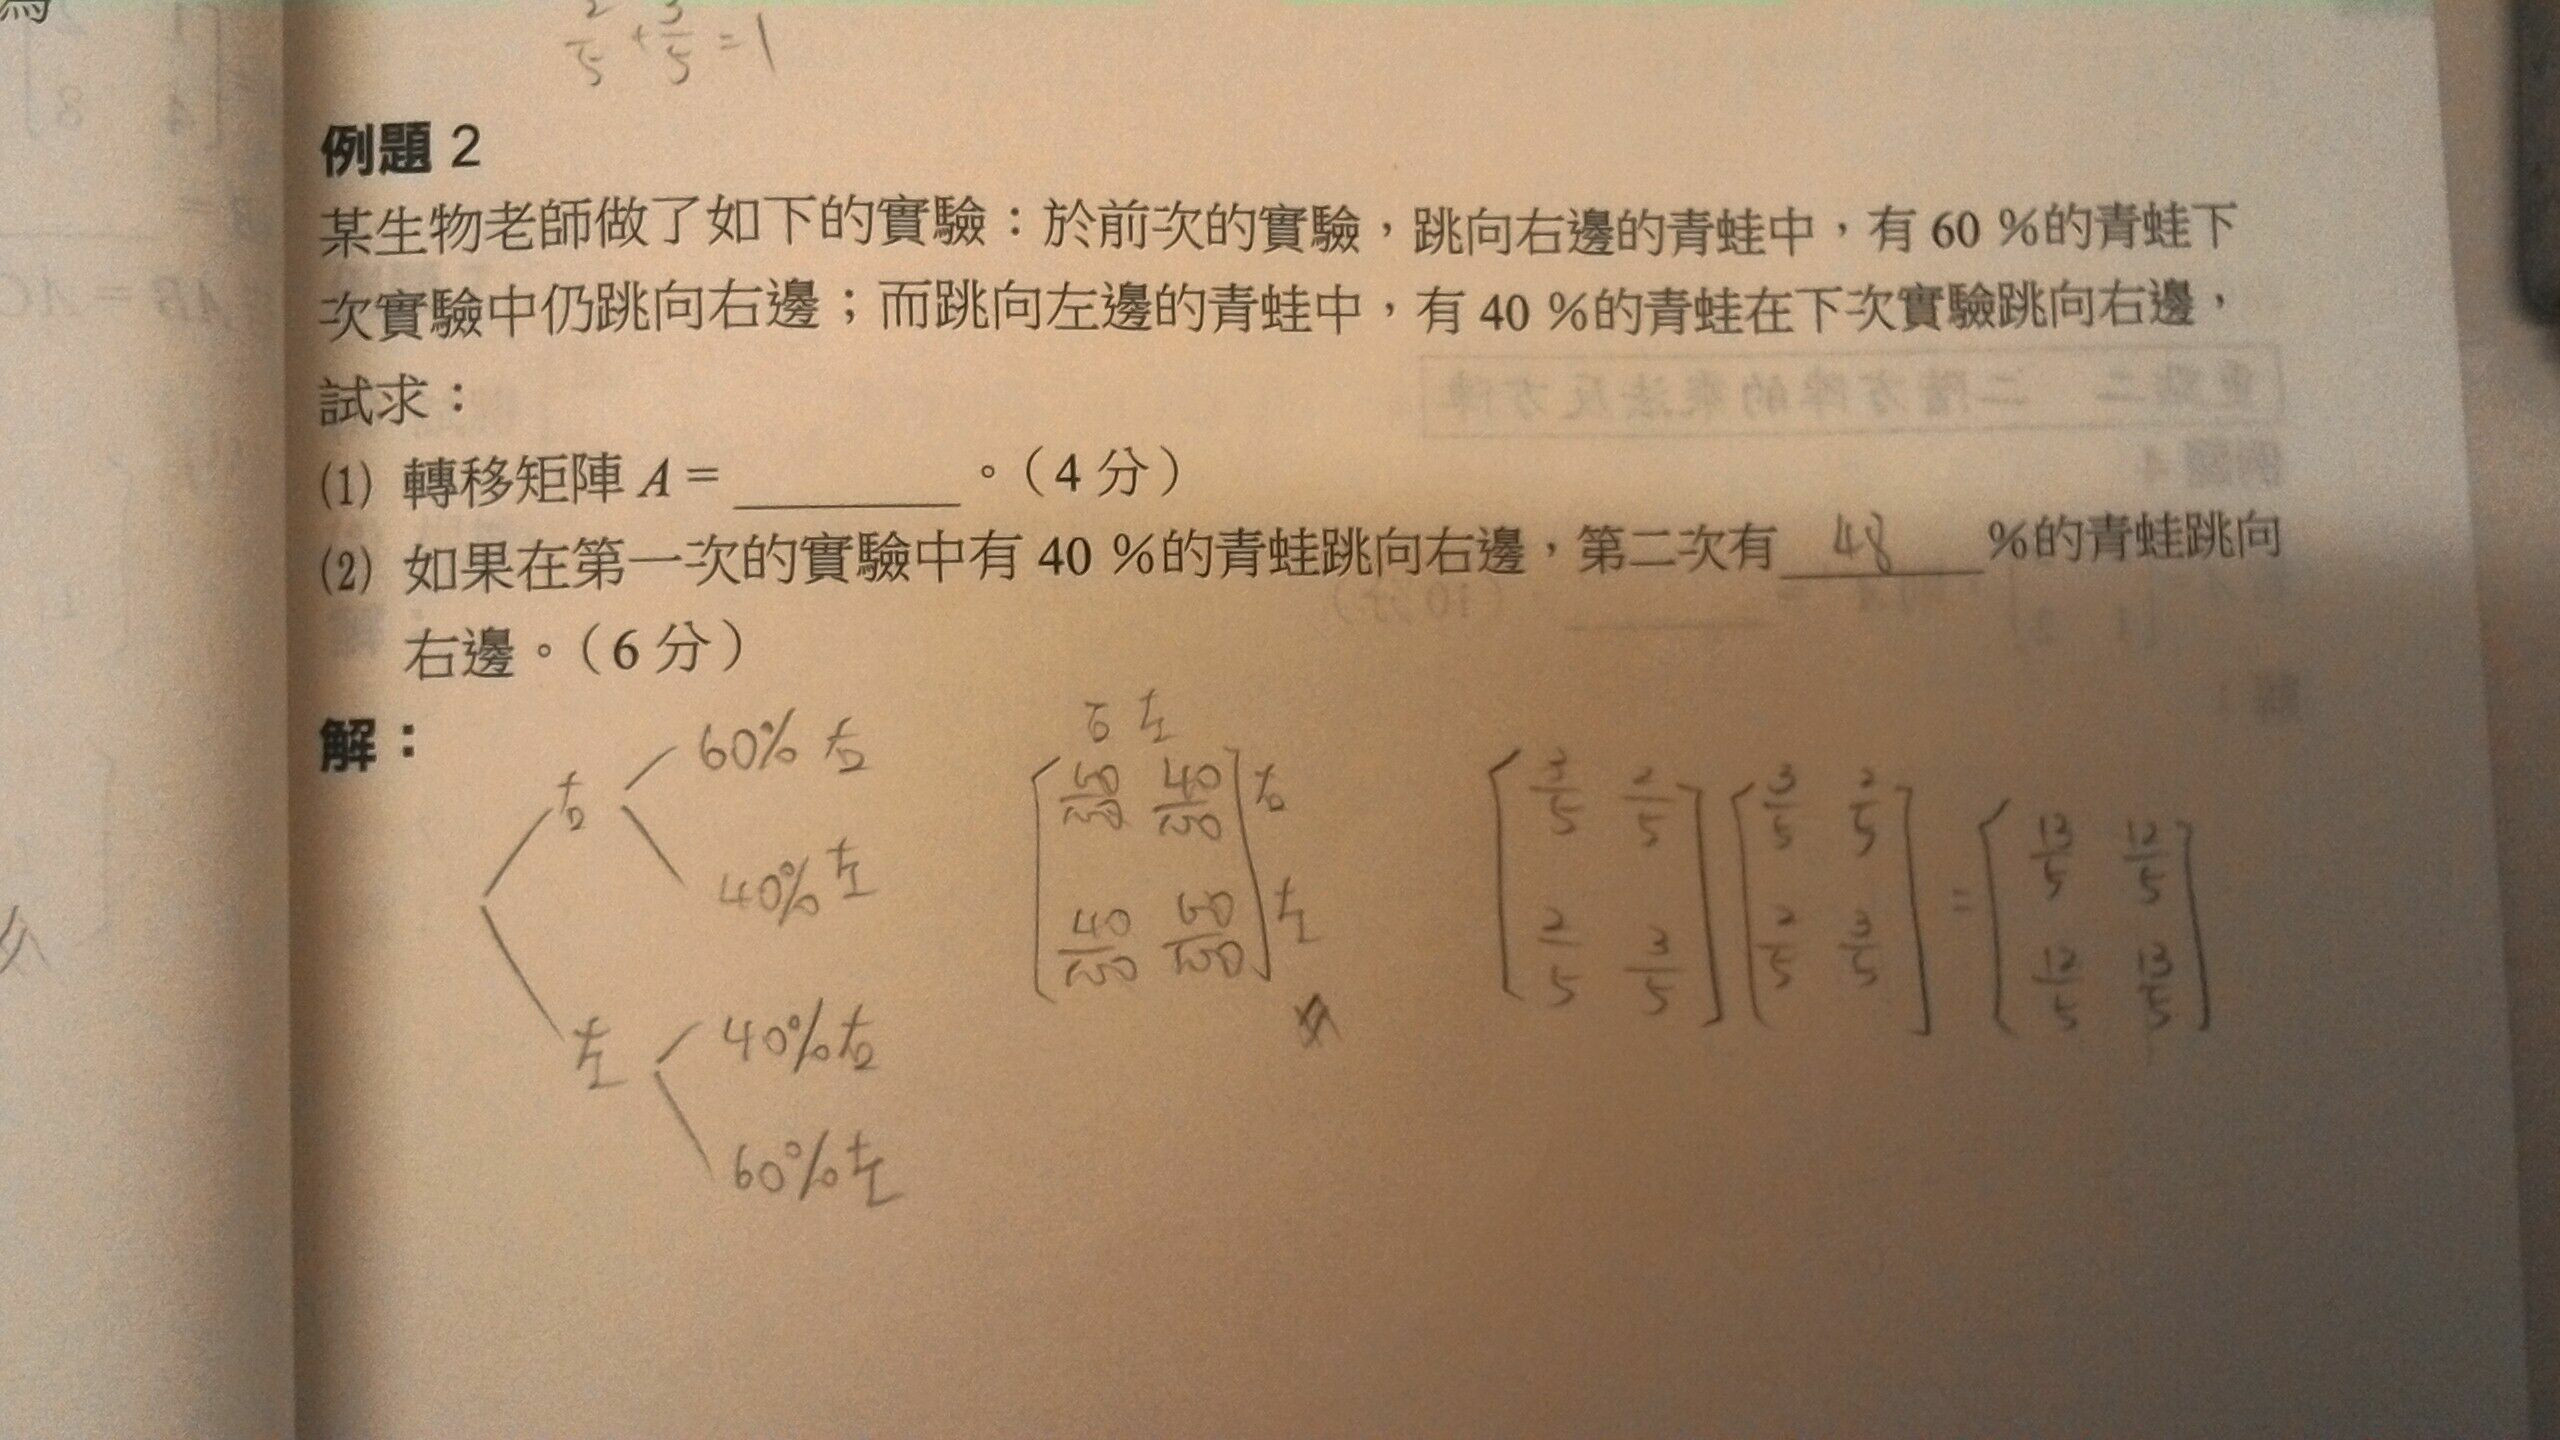 2/5 + 3/5 = 1
例題 2
某生物老師做了如下的實驗：於前次的實驗，跳向右邊的青蛙中，有 60 %的青蛙下
次實驗中仍跳向右邊；而跳向左邊的青蛙中，有 40 %的青蛙在下次實驗跳向右邊，
試求：
(1) 轉移矩陣 A = ______。（4 分）
(2) 如果在第一次的實驗中有 40 %的青蛙跳向右邊，第二次有 48 %的青蛙跳向
右邊。（6 分）
解：
右 60% 右
40% 左
左 40% 右
60% 左
右 左
[60/100 40/100] 右
[40/100 60/100] 左
[3/5 2/5] [3/5 2/5] = [13/5 12/5]
[2/5 3/5] [2/5 3/5] [12/5 13/5]